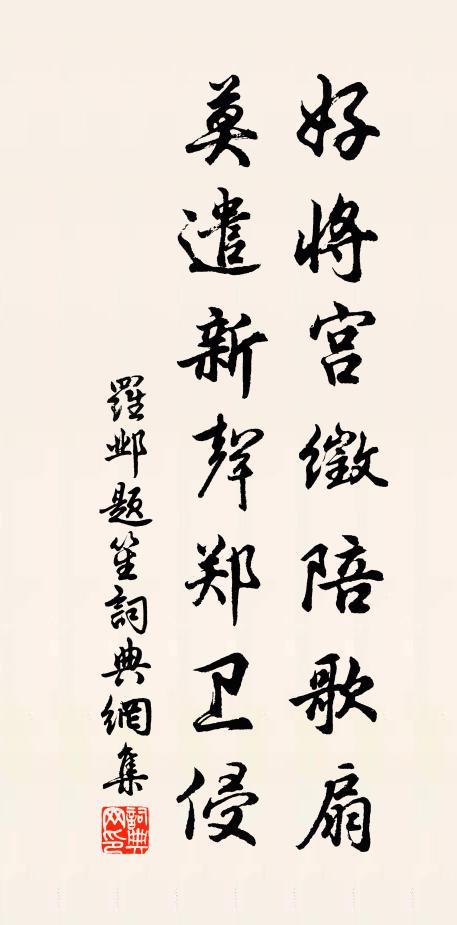 好将宫徵陪歌扇
莫遣新声郑卫侵
羅邺题笙詞典網集
詞典网印